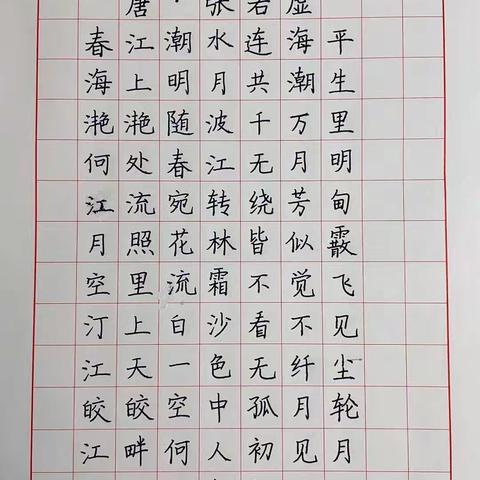 唐·张若虚
春江潮水连海平
海上明月共潮生
滟滟随波千万里
何处春江无月明
江流宛转绕芳甸
月照花林皆似霰
空里流霜不觉飞
汀上白沙看不见
江天一色无纤尘
皎皎空中孤月轮
江畔何人初见月